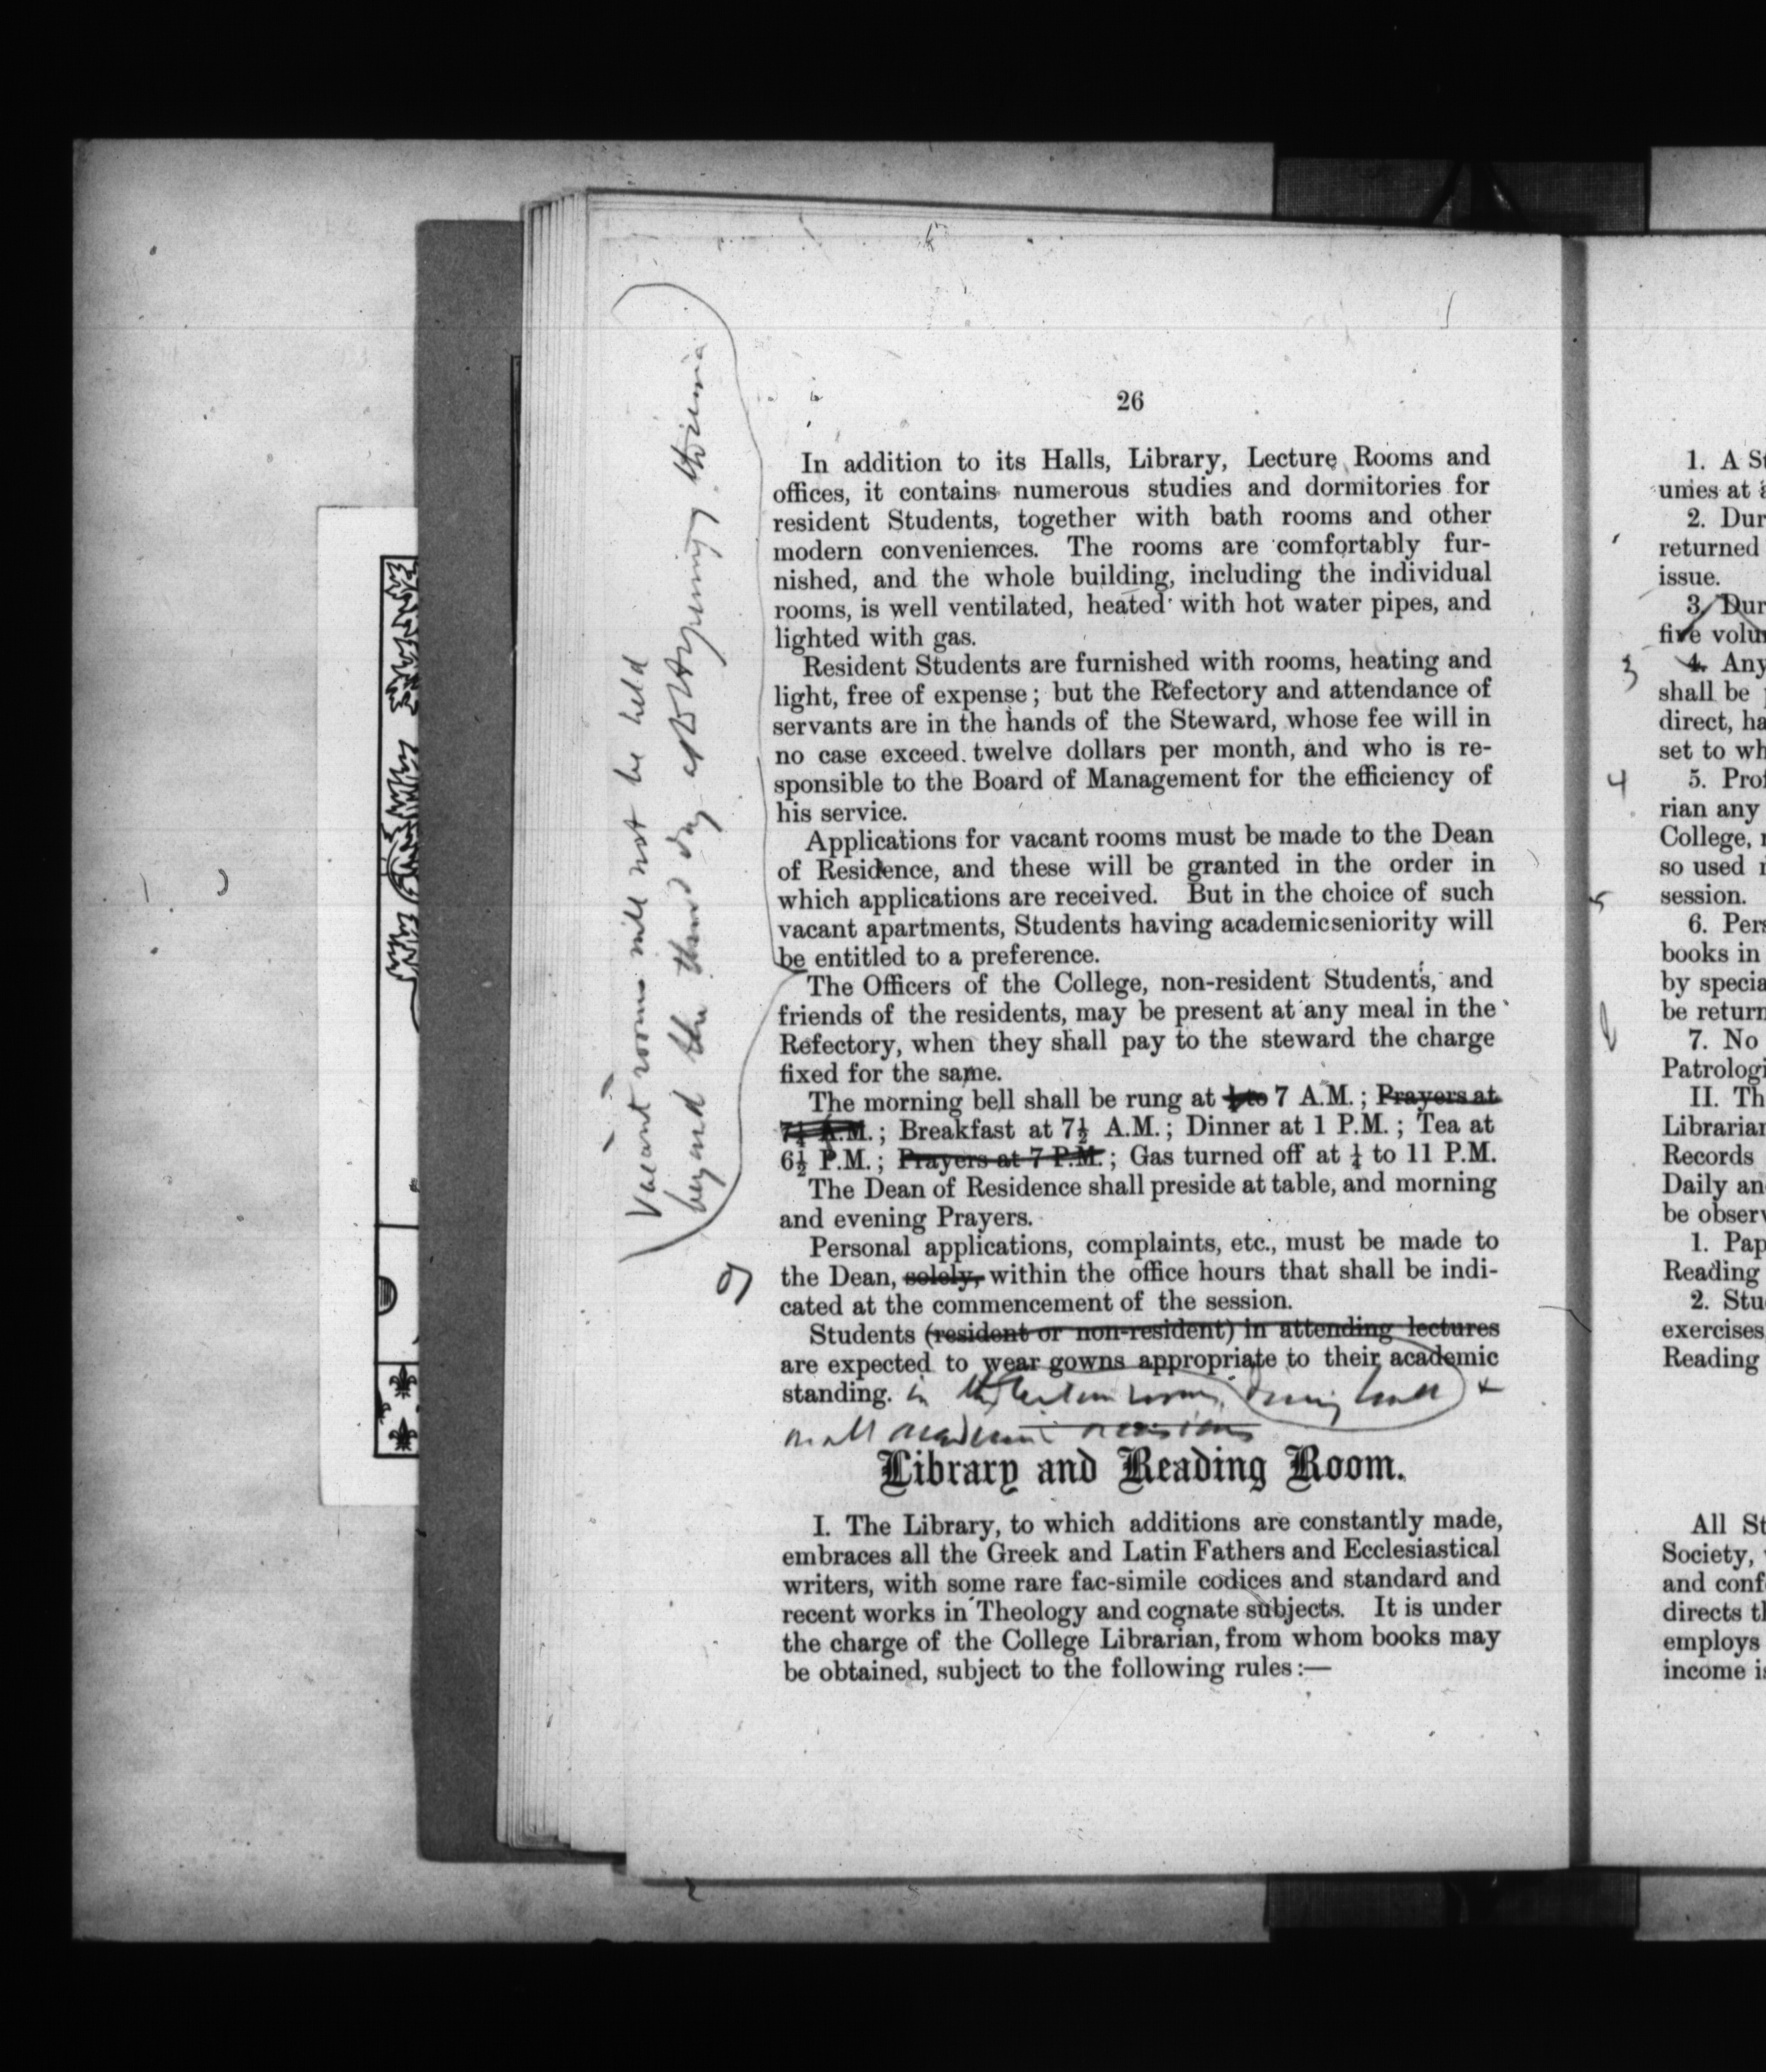 26
In addition to its Halls, Library, Lecture Rooms and
offices, it contains numerous studies and dormitories for
resident Students, together with bath rooms and other
modern conveniences. The rooms are comfortably fur-
nished, and the whole building, including the individual
rooms, is well ventilated, heated with hot water pipes, and
lighted with gas.
Resident Students are furnished with rooms, heating and
light, free of expense; but the Refectory and attendance of
servants are in the hands of the Steward, whose fee will in
no case exceed twelve dollars per month, and who is re-
sponsible to the Board of Management for the efficiency of
his service.
Applications for vacant rooms must be made to the Dean
of Residence, and these will be granted in the order in
which applications are received. But in the choice of such
vacant apartments, Students having academic seniority will
be entitled to a preference.
Vacant rooms will not be held
beyond the third day of the opening
The Officers of the College, non-resident Students, and
friends of the residents, may be present at any meal in the
Refectory, when they shall pay to the steward the charge
fixed for the same.
The morning bell shall be rung at ¼ to 7 A.M.; Prayers at
7¼ A.M.; Breakfast at 7½ A.M.; Dinner at 1 P.M.; Tea at
6½ P.M.; Prayers at 7 P.M.; Gas turned off at ¼ to 11 P.M.
The Dean of Residence shall preside at table, and morning
and evening Prayers.
Personal applications, complaints, etc., must be made to
the Dean, solely, within the office hours that shall be indi-
cated at the commencement of the session.
Students (resident or non-resident) in attending lectures
are expected to wear gowns appropriate to their academic
standing. in the lecture rooms, dining hall &
on all academic occasions
Library and Reading Room.
I. The Library, to which additions are constantly made,
embraces all the Greek and Latin Fathers and Ecclesiastical
writers, with some rare fac-simile codices and standard and
recent works in Theology and cognate subjects. It is under
the charge of the College Librarian, from whom books may
be obtained, subject to the following rules:—
1. A
at
2. Dur
returned
issue.
3. Dur
five volu
3
4. Any
shall be
direct, ha
set to wh
4
5. Prof
rian any
College,
so used
session.
5
6. Pers
books in
by specia
be return
7. No
Patrologi
II. Th
Librarian
Records
Daily an
be observ
1. Pap
Reading
2. Stu
exercises
Reading
All St
Society,
and conf
directs th
employs
income is